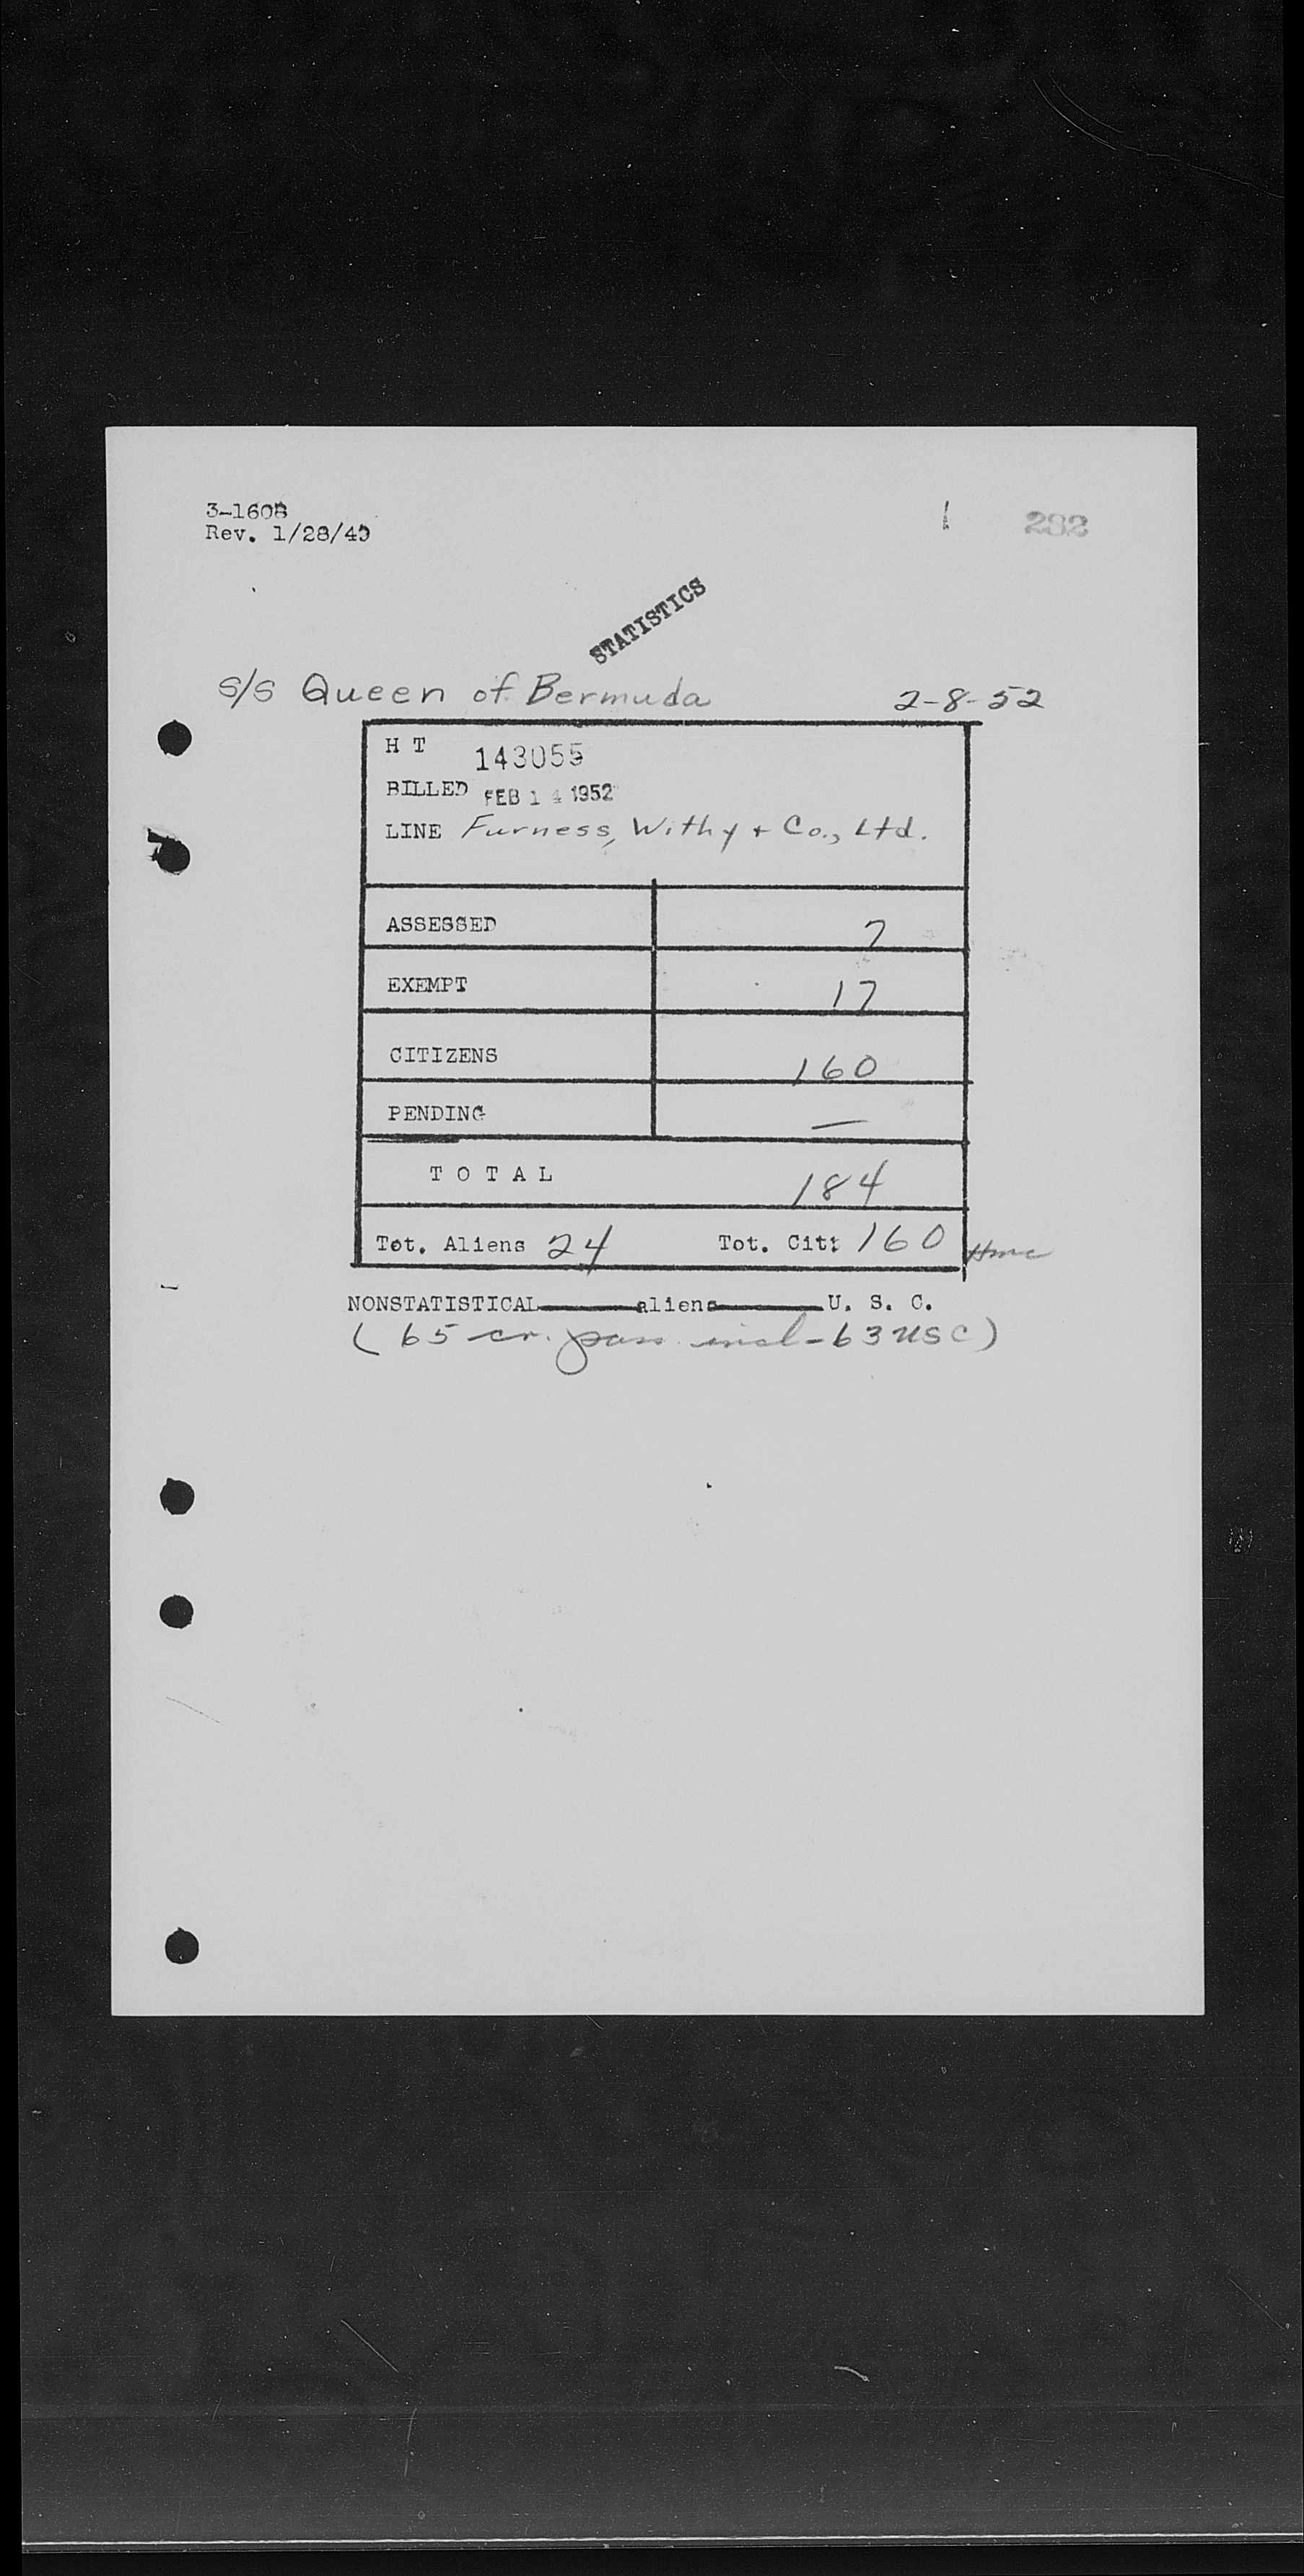 3-1608
Rev. 1/28/49
282
STATISTICS
S/S Queen of Bermuda 2-8-52
H T 143055
BILLED FEB 14 1952
LINE Furness, Withy + Co., Ltd.
ASSESSED 7
EXEMPT 17
CITIZENS 160
PENDING —
T O T A L 184
Tot. Aliens 24 Tot. Cit: 160
NONSTATISTICAL aliens U. S. C.
( 65 cr. pass. incl - 63 USC )